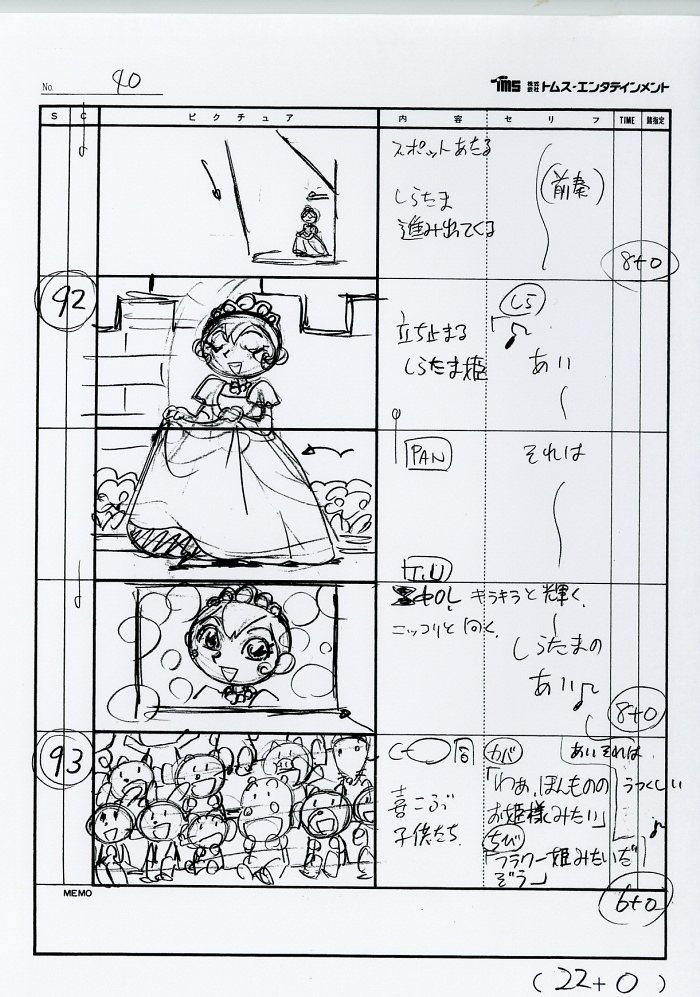 No. 40
TMS 株式会社 トムス・エンタテインメント
S C ピクチュア 内容 セリフ TIME
スポットあたる
(前奏)
しらたま
進み出てくる
8+0
92
しら
立ち止まる
しらたま姫
あい
PAN
それは
T.U
キラキラと輝く。
ニッコリと向く。
しらたまの
あい♪
8+0
93
同
カバ
あいそれは
うつくしい
「わぁ、ほんものの
お姫様みたい」
喜こぶ
子供たち。
ちび
「フラワー姫みたいだ
ぞう」
6+0
MEMO
(22+0)